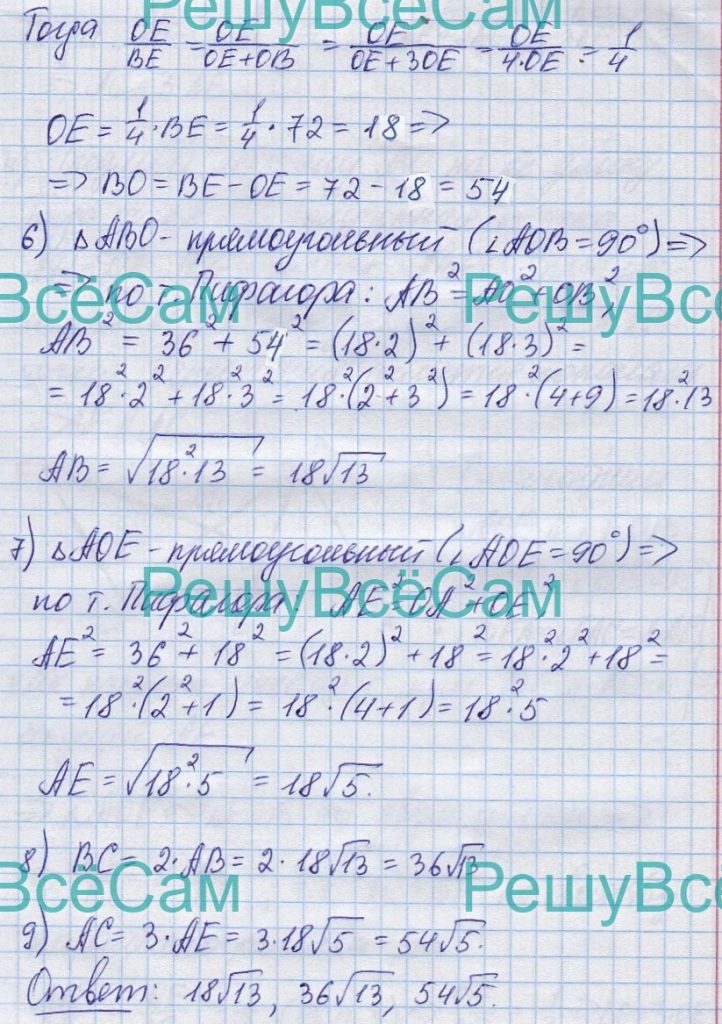 РешуВсёСам
Тогда OE/BE = OE/(OE+OB) = OE/(OE+3OE) = OE/(4·OE) = 1/4
OE = 1/4·BE = 1/4·72 = 18 =>
=> BO = BE - OE = 72 - 18 = 54
6) ΔABO - прямоугольный (∠AOB = 90°) =>
=> по т. Пифагора: AB² = AO² + OB²,
ВсёСам РешуВсё
AB² = 36² + 54² = (18·2)² + (18·3)² =
= 18²·2² + 18²·3² = 18²·(2² + 3²) = 18²·(4+9) = 18²·13
AB = √(18²·13) = 18√13
7) ΔAOE - прямоугольный (∠AOE = 90°) =>
по т. Пифагора: AE² = OA² + OE²,
РешуВсёСам
AE² = 36² + 18² = (18·2)² + 18² = 18²·2² + 18² =
= 18²·(2² + 1) = 18²·(4+1) = 18²·5
AE = √(18²·5) = 18√5.
8) BC = 2·AB = 2·18√13 = 36√13
ВсёСам РешуВсё
9) AC = 3·AE = 3·18√5 = 54√5.
Ответ: 18√13, 36√13, 54√5.